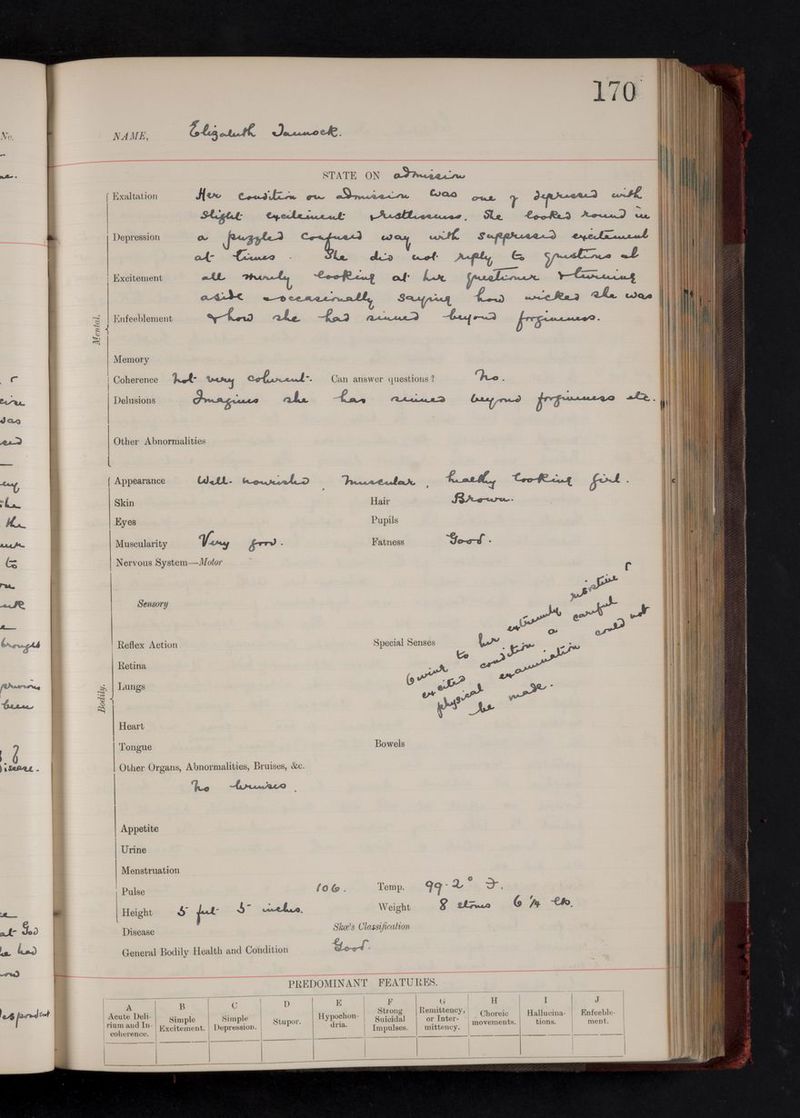 170
NAME, Elizabeth Jannock.
STATE ON admission
Mental.
Exaltation Her condition on admission was one of depression with
slight excitement & restlessness. She looked round in
Depression a puzzled confused way with suppressed excitement
at times. She did not reply to questions at
Excitement all merely looking at her questioner & turning
aside & occasionally saying how wicked she was
Enfeeblement & how she had sinned beyond forgiveness.
Memory
Coherence Not very coherent. Can answer questions? No.
Delusions Imagines she has sinned beyond forgiveness etc.
Other Abnormalities
Bodily.
Appearance Well-nourished, muscular, healthy looking girl.
Skin Hair Brown.
Eyes Pupils
Muscularity Very good. Fatness Good.
Nervous System—Motor
Sensory
Reflex Action Special Senses
Retina
Lungs
Owing to her extremely resistive &
excited condition a careful
physical examination could not
be made.
Heart
Tongue Bowels
Other Organs, Abnormalities, Bruises, &c.
No bruises.
Appetite
Urine
Menstruation
Pulse 106. Temp. 99.2° F.
Height 5 feet 5 inches. Weight 8 stones 6 1/4 lbs.
Disease Skae's Classification
General Bodily Health and Condition Good.
PREDOMINANT FEATURES.
A Acute Delirium and Incoherence.
B Simple Excitement.
C Simple Depression.
D Stupor.
E Hypochondria.
F Strong Suicidal Impulses.
G Remittency, or Intermittency.
H Choreic movements.
I Hallucinations.
J Enfeeblement.